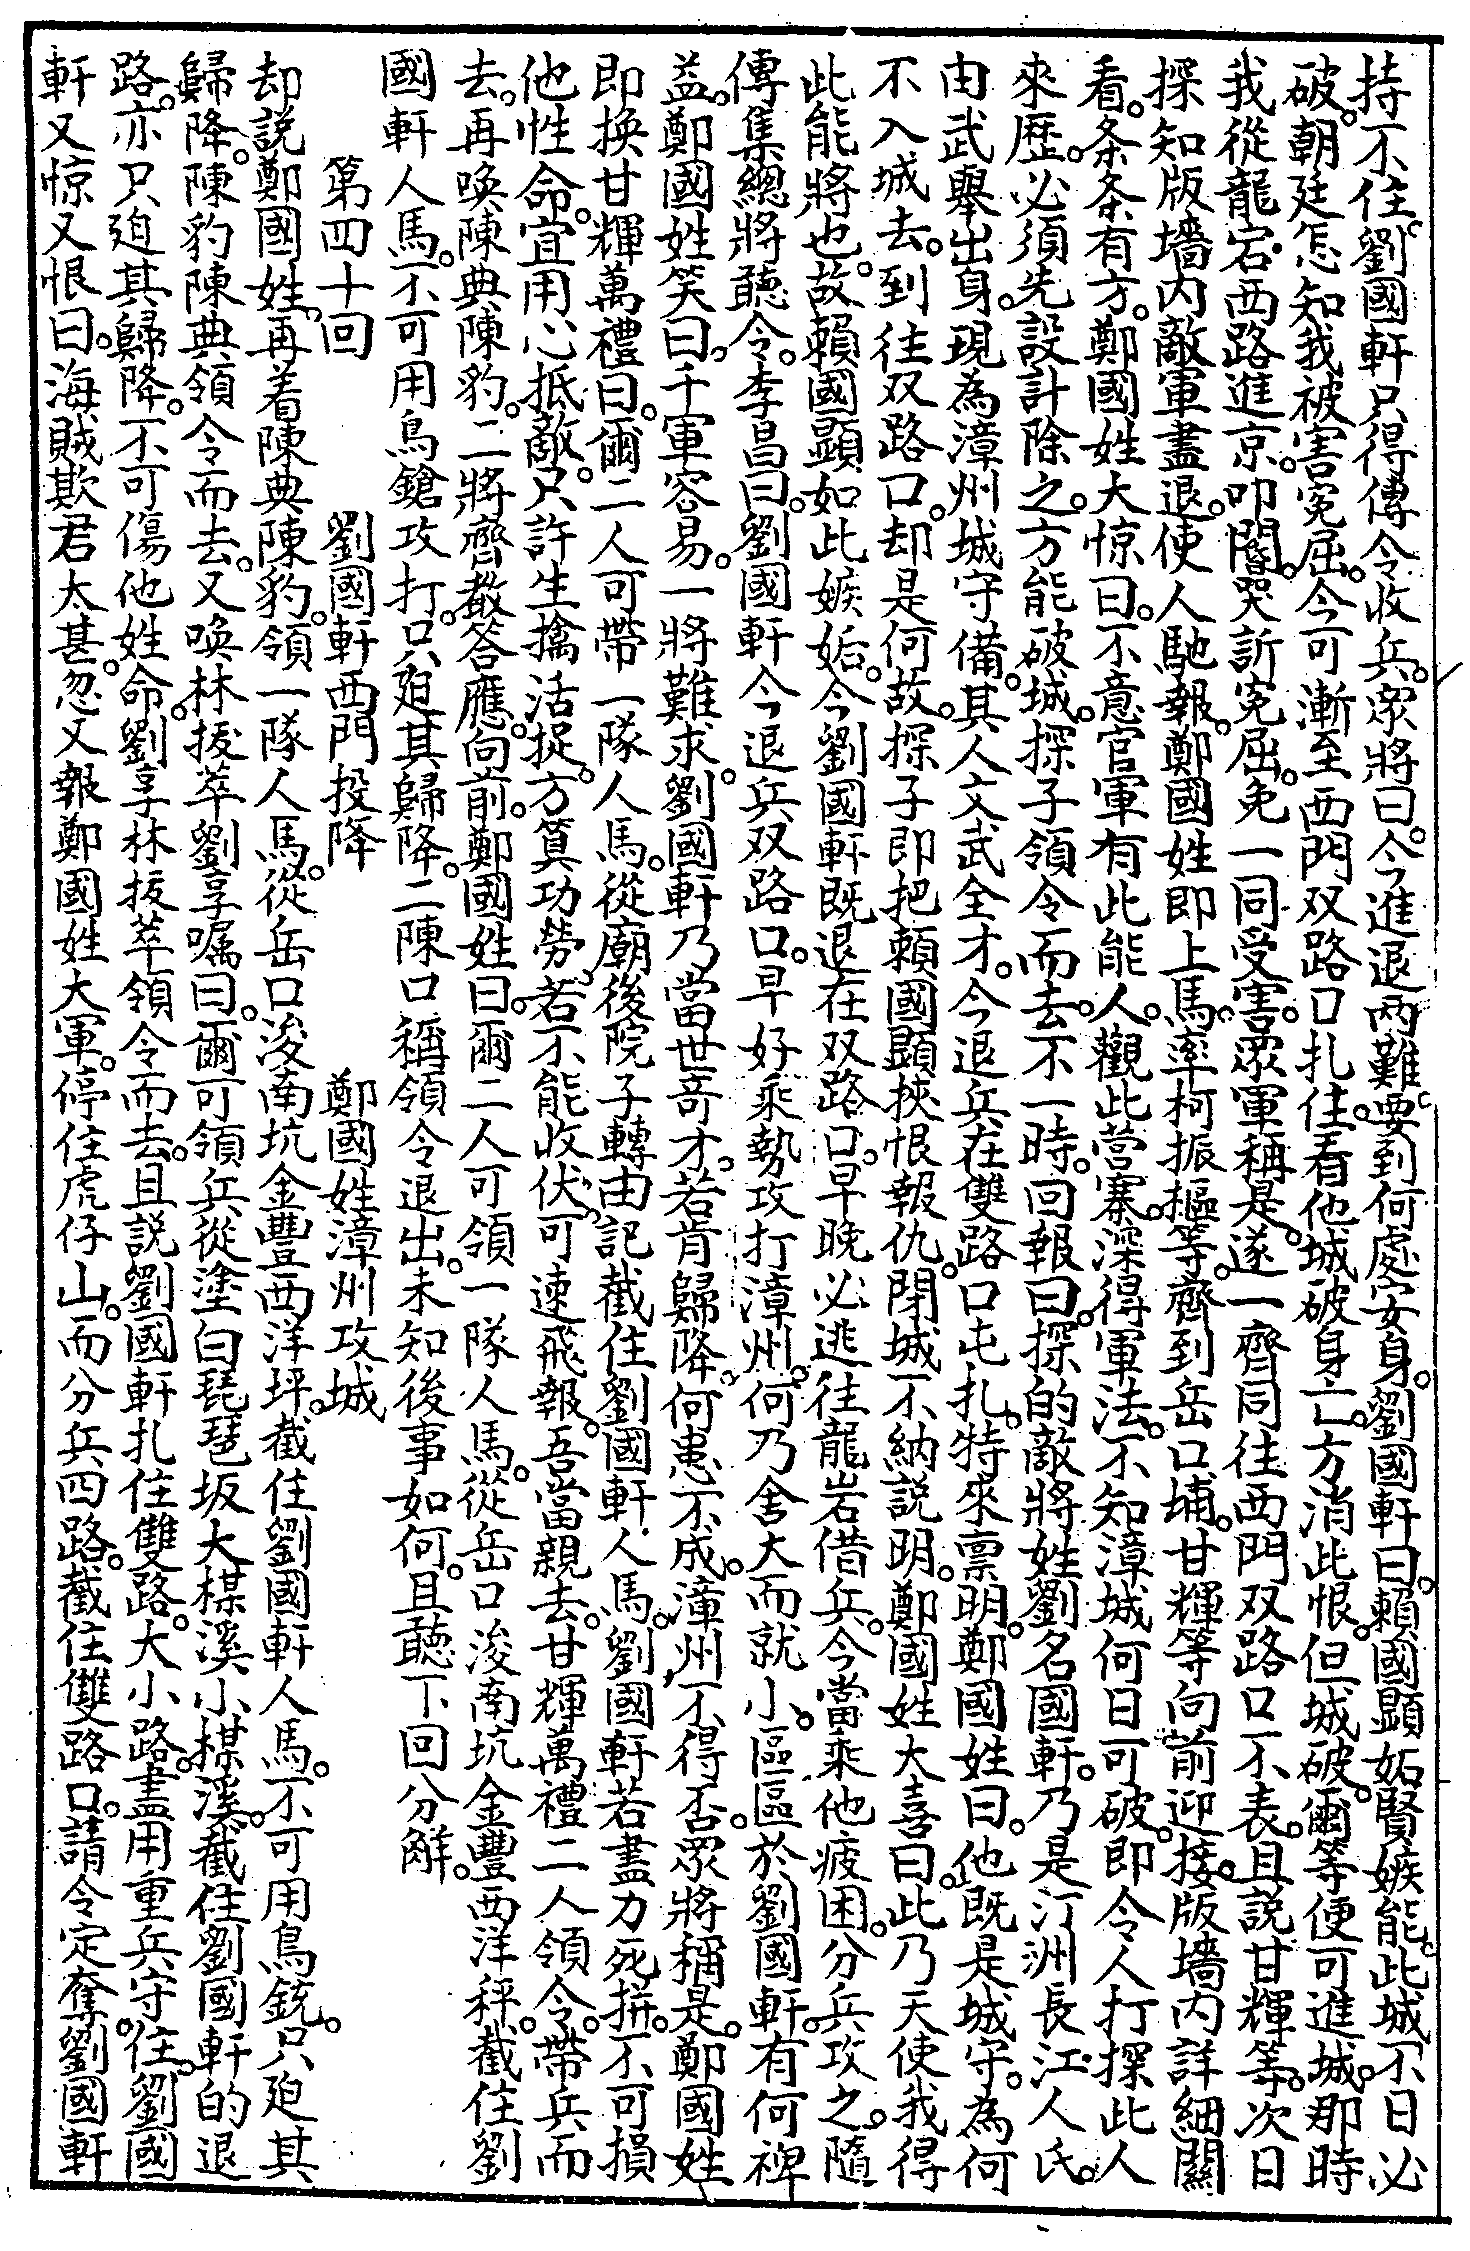 持不住。劉國軒只得傳令收兵。眾將曰。今進退两難。要到何處安身。劉國軒曰。賴國顯妬賢嫉能。此城不日必
破。朝廷怎知我被害冤屈。今可漸至西門双路口扎住。看他城破身亡。方消此恨。但城破。爾等便可進城。那時
我從龍岩西路進京。叩閽哭訴冤屈。免一同受害。眾軍稱是。遂一齊同往西門双路口不表。且説甘輝等。次日
探知版墻内敵軍盡退。使人馳報。鄭國姓即上馬。率柯振樞等。齊到岳口埔。甘輝等向前迎接。版墻内詳細關
看。条条有方。鄭國姓大惊曰。不意官軍有此能人。觀此营寨。深得軍法。不知漳城何日可破。即令人打探此人
來歷。必須先設計除之。方能破城。探子領令而去。不一時。回報曰。探的敵將姓劉名國軒。乃是汀洲長江人氏。
由武舉出身。現為漳州城守備。其人文武全才。今退兵在雙路口屯扎。特來禀明。鄭國姓曰。他既是城守。為何
不入城去。到往双路口。却是何故。探子即把賴國顕挾恨報仇。閉城不納説明。鄭國姓大喜曰。此乃天使我得
此能將也。故賴國顕如此嫉妬。今劉國軒既退在双路口。早晚必逃往龍岩借兵。今當乘他疲困。分兵攻之。隨
傳集總將聽令。李昌曰。劉國軒今退兵双路口。早好乘勢攻打漳州。何乃舍大而就小。區區於劉國軒。有何裨
益。鄭國姓笑曰。千軍容易。一將難求。劉國軒乃當世奇才。若肯歸降。何患不成。漳州不得否。眾將稱是。鄭國姓
即换甘輝萬禮曰。爾二人可帶一隊人馬。從廟後院子轉由記截住劉國軒人馬。劉國軒若盡力死拼。不可損
他性命。宜用心抵敵。只許生擒活捉。方算功勞。若不能收伏。可速飛報。吾當親去。甘輝萬禮二人領令。帶兵而
去。再唤陳典陳豹。二將齊敎答應。向前。鄭國姓曰。爾二人可領一隊人馬。從岳口浚南坑金豐西洋秤。截住劉
國軒人馬。不可用鳥鎗攻打。只廹其歸降。二陳口稱領令退出。未知後事如何。且聽下回分觧。
第四十回　劉國軒西門投降　鄭國姓漳州攻城
却説鄭國姓。再着陳典陳豹。領一隊人馬。從岳口浚南坑金豐西洋坪。截住劉國軒人馬。不可用鳥銃。只廹其
歸降。陳豹陳典領令而去。又唤林拔萃劉享嘱曰。爾可領兵從塗白琵琶坂大楳溪小楳溪。截住劉國軒的退
路。亦只廹其歸降。不可傷他姓命。劉享林拔萃領令而去。且説劉國軒扎住雙路。大小路。盡用重兵守住。劉國
軒又惊又恨曰。海賊欺君太甚。忽又報鄭國姓大軍。停住虎仔山。而分兵四路。截住雙路口。請令定奪。劉國軒